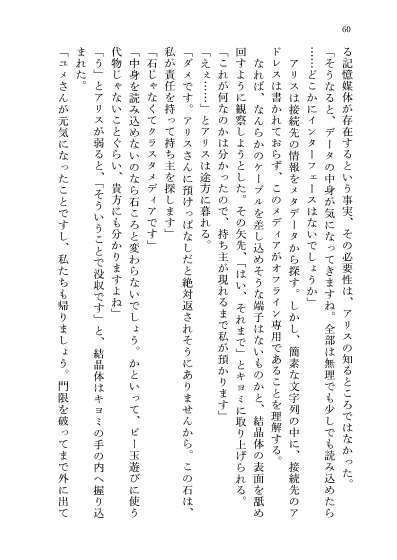 60
る記憶媒体が存在するという事実、その必要性は、アリスの知るところではなかった。
「そうなると、データの中身が気になってきますね。全部は無理でも少しでも読み込めたら
……どこかにインターフェースはないでしょうか」
アリスは接続先の情報をメタデータから探す。しかし、簡素な文字列の中に、接続先のア
ドレスは書かれておらず、このメディアがオフライン専用であることを理解する。
なれば、なんらかのケーブルを差し込めそうな端子はないものかと、結晶体の表面を舐め
回すように観察しようとした。その矢先、「はい、それまで」とキヨミに取り上げられる。
「これが何なのかは分かったので、持ち主が現れるまで私が預かります」
「えぇ……」とアリスは途方に暮れる。
「ダメです。アリスさんに預けっぱなしだと絶対返されそうにありませんから。この石は、
私が責任を持って持ち主を探します」
「石じゃなくてクラスタメディアです」
「中身を読み込めないのなら石ころと変わらないでしょう。かといって、ビー玉遊びに使う
代物じゃないことぐらい、貴方にも分かりますよね」
「う」とアリスが弱ると、「そういうことで没収です」と、結晶体はキヨミの手の内へ握り込
まれた。
「ユメさんが元気になったことですし、私たちも帰りましょう。門限を破ってまで外に出て